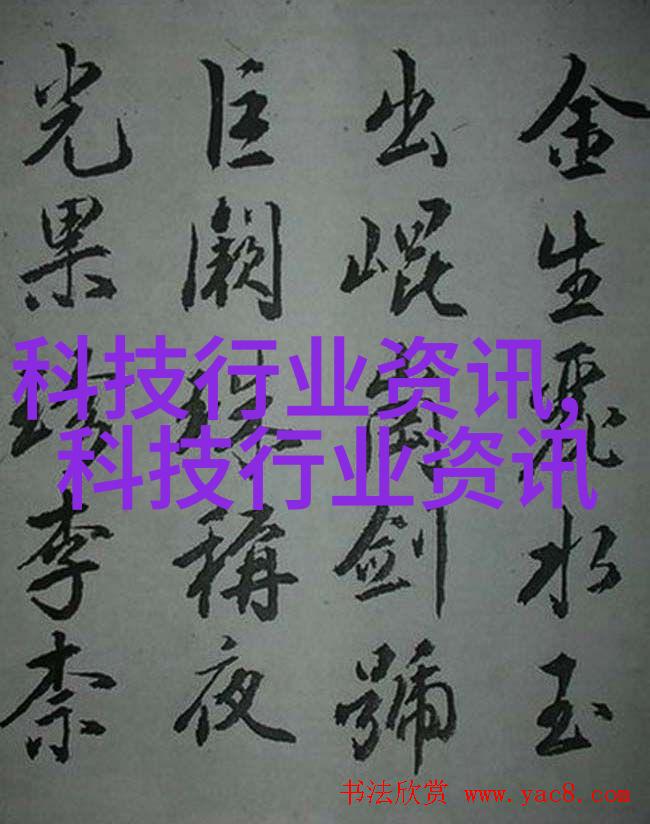 金生麗水玉
出崐岡劍號
巨闕珠稱夜
光果珍李柰
科技行业资讯,
科技行业资讯
书法欣赏 www.yac8.com